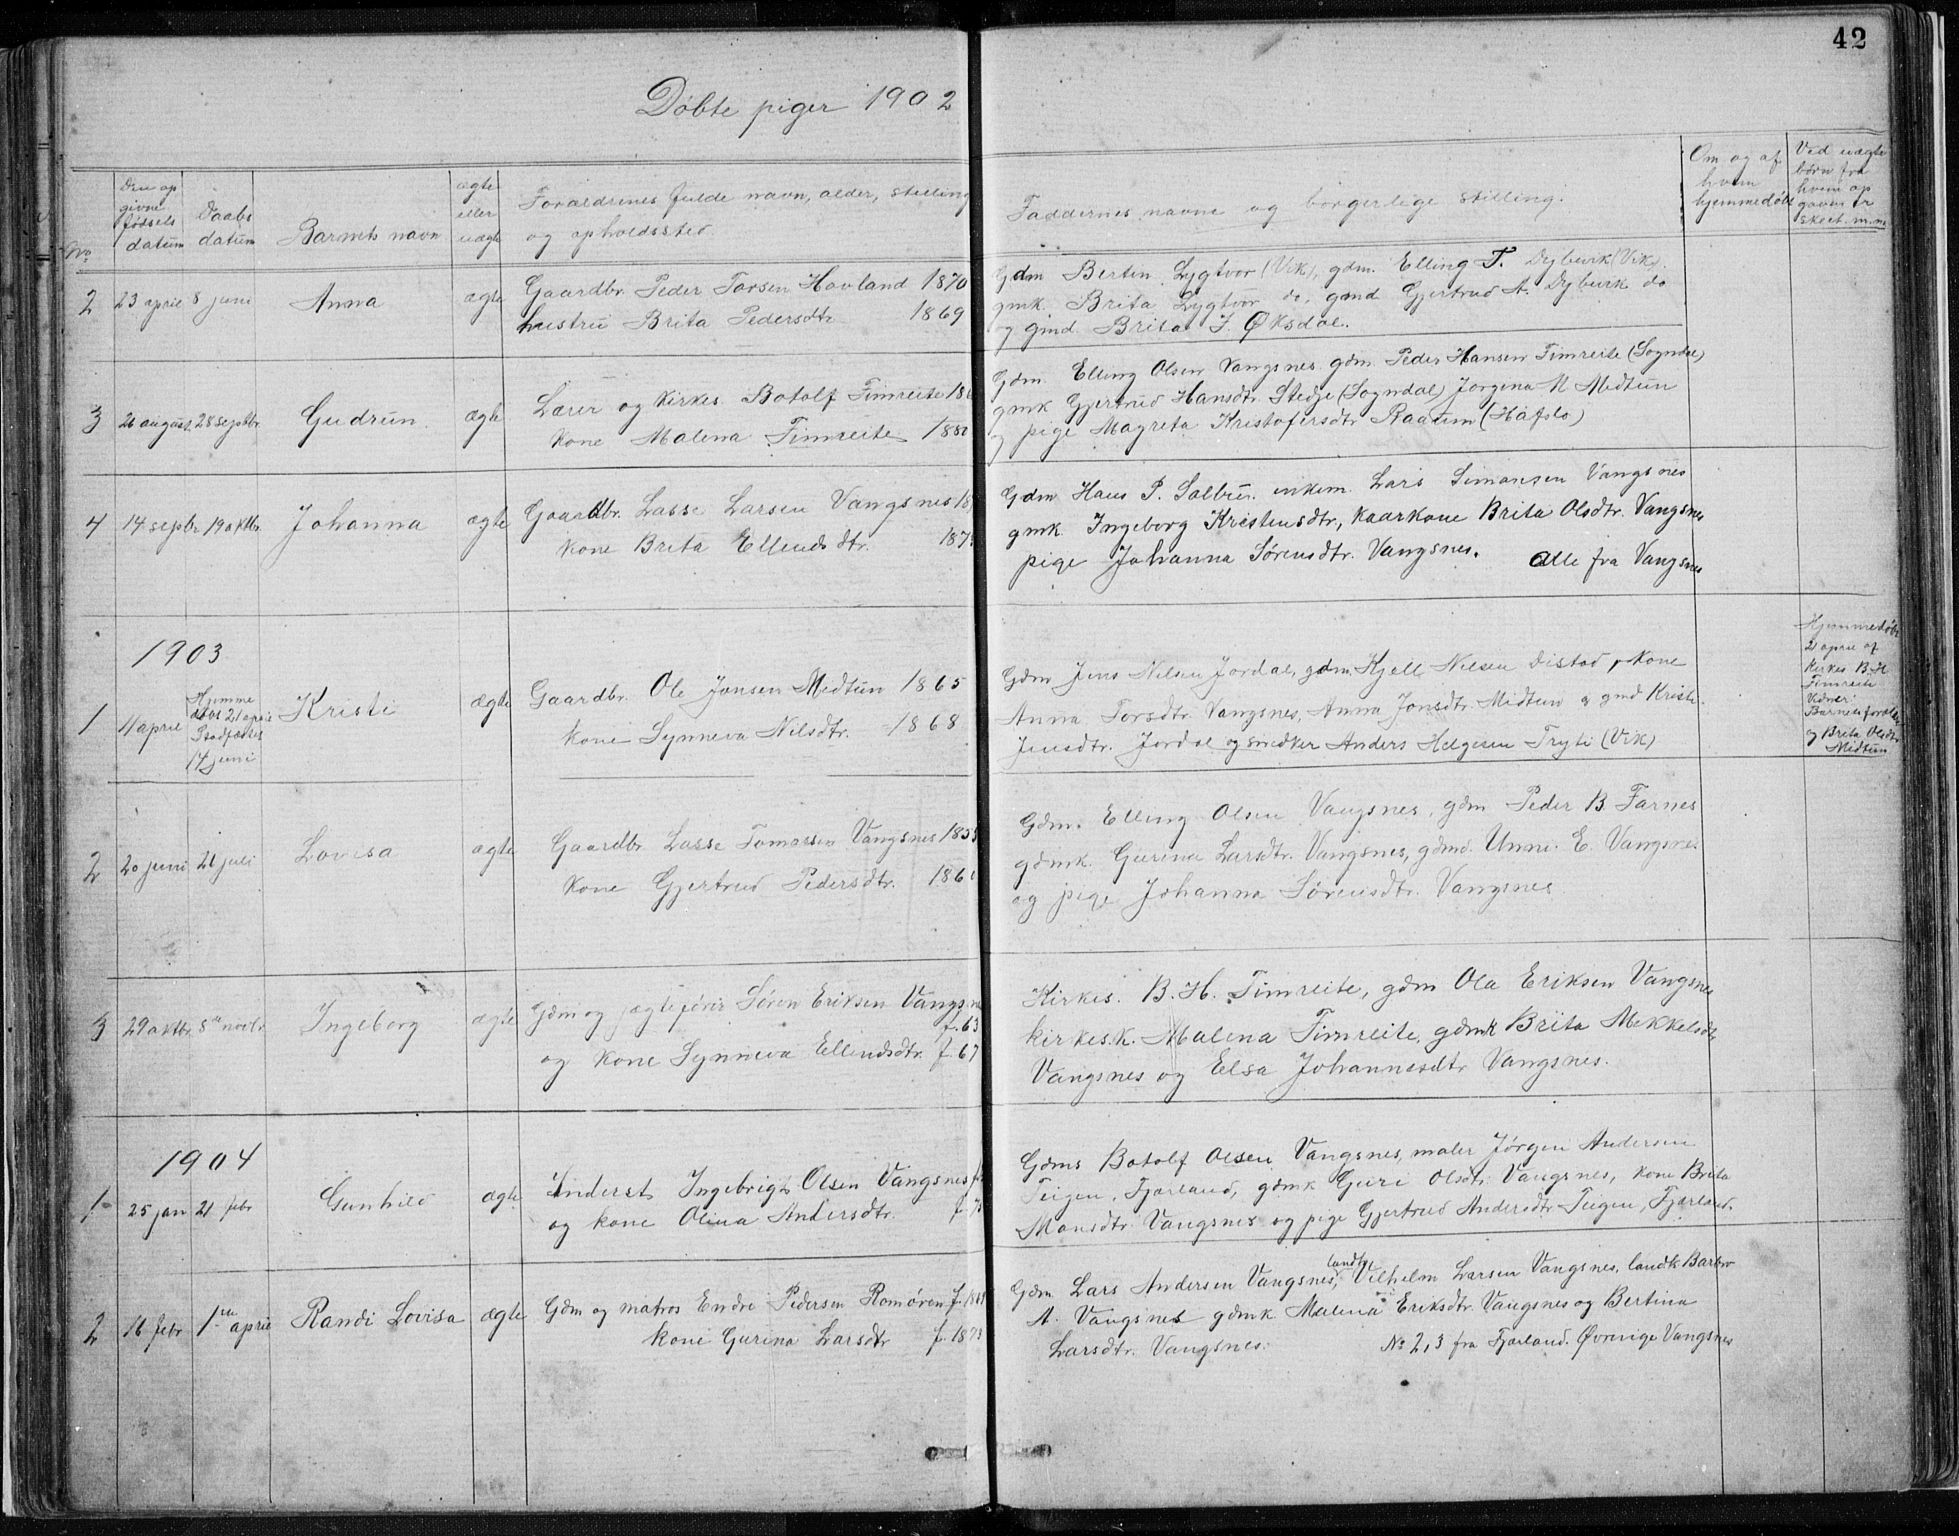 42
Døbte piger 1902
No
Den op
givne
fødsels
datum
Daabs
datum
Barnets navn
ægte
eller
uægte
Forældrenes fulde navn, alder, stilling
og opholdssted.
Faddernes navne og borgerlige stilling.
Om og af
hvem
hjemmedøbt
Ved uægte
børn fra
hvem op
gaven er
skeet m.m.
2 23 april 8 juni Anna ægte
Gaardbr. Peder Torsen Hovland 1870
hustru Brita Pedersdtr. 1869
Gdm Berten Lygtvor (Vik), gdm. Elling T. Dybevik (Vik),
gmk. Brita Lygtvor do, gmd Gjertrud A. Dybevik do
og gmd. Brita J. Øksdal.
3 26 august. 28 septbr. Gudrun ægte
Lærer og Kirkes. Botolf Timreite 186
Kone Malena Timreite 188
Gdm. Elling Olsen Vangsnes gdm. Peder Hansen Timreite (Sogndal)
gmk Gjertrud Hansdtr. Stedje (Sogndal) Jorgena M Medtun
og pige Magreta Kristofersdtr Raaum (Hafslo)
4 14 sepbr 19 oktbr. Johanna ægte
Gaardbr. Lasse Larsen Vangsnes 18
Kone Brita Ellends dtr. 187
Gdm Hans P. Salbu. enkem. Lars Simonsen Vangsnes
gmk. Ingeborg Kristensdtr, Kaarkone Brita Olsdtr. Vangsnes
pige Johanna Sørensdtr. Vangsnes. alle fra Vangsnes
1903
1 11 april
Hjemme
døbt 21 april
Stadfæstes
14 juni
Kristi ægte
Gaardbr. Ole Jonsen Medtun 1865
Kone Synneva Nilsdtr. 1868
Gdm Jens Nilsen Jordal, gdm. Kjell Nilsen Distad, Kone
Anna Torsdtr. Vangsnes, Anna Jonsdtr. Midtun og gmd Kristi
Jensdtr. Jordal og snedker Anders Helgesen Tryti (Vik)
Hjemmedøbt
21 april af
Kirkes B.H.
Timreite
Vidner:
Barnets forældre
og Brita Olsdtr
Midtun
2 20 juni 21 juli Lovisa ægte
Gaardbr. Lasse Tomassen Vangsnes 185
Kone Gjertrud Pedersdtr. 186
Gdm. Elling Olsen Vangsnes, gdm Peder B. Farnes
gdmk. Gurina Larsdtr. Vangsnes, gdmd. Unni. E. Vangsnes
og pige Johanna Sørensdtr. Vangsnes
3 29 oktbr. 8de novbr Ingeborg ægte
Gdm og jægtefører Søren Eriksen Vangsnes
f. 63
og Kone Synneva Ellendsdtr. f. 67
Kirkes. B. H. Timreite, gdm Ola Eriksen Vangsnes
kirkes.k. Malena Timreite, gdmk Brita Mekkelsdtr
Vangsnes og Elsa Johannesdtr Vangsnes.
1904
1 25 jan 21 febr Gunhild ægte
Inderst Ingebrigt Olsen Vangsnes f.
og kone Olina Andersdtr. f. 7
Gdms Botolf Olsen Vangsnes, maler Jørgen Andersen
Teigen, Fjærland, gdmk Guri Olsdtr. Vangsnes, kone Brita
Monsdtr. Vangsnes og pige Gjertrud Andersdtr Teigen, Fjærland.
2 16 febr 1ste april Randi Lovisa ægte
Gdm og matros Endre Pedersen Romøren f. 18
Kone Gurina Larsdtr f. 1873
Gdm Lars Andersen Vangsnes, landh. Vilhelm Larsen Vangsnes, landk Barbro
A. Vangsnes gdmk. Malena Eriksdtr. Vangsnes og Bertina
Larsdtr. Vangsnes. No 2, 3 fra Fjærland. Øvrige Vangsnes